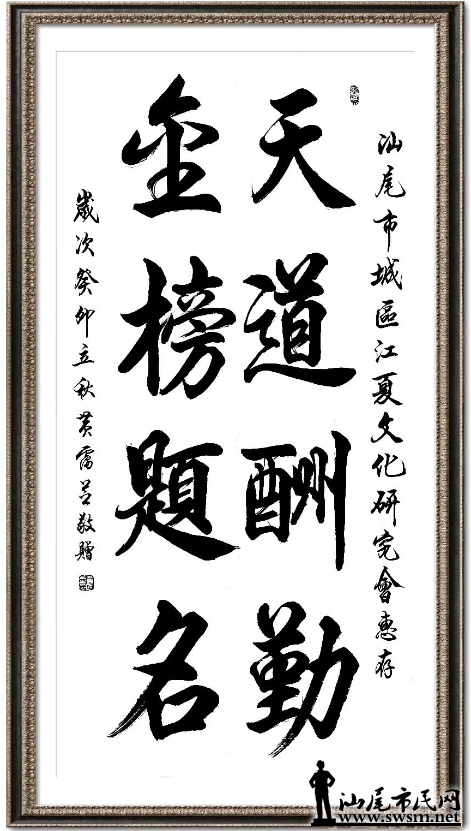 汕尾市城區江夏文化研究會惠存
天道酬勤
金榜題名
歲次癸卯立秋黃敬贈
汕尾市民网
www.swsm.net